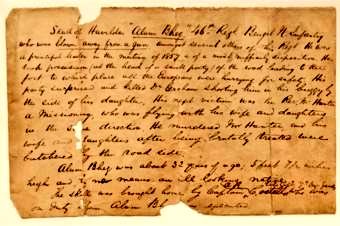 Skull of Havildar "Alum Bheg," 46th Regt. Bengal N. Infantry
who was blown away from a gun, amongst several others of his Regt. He was
a principal leader in the mutiny of 1857 & of a most ruffianly disposition. He
took possession (at the head of a small party) of the road leading to the
fort, to which place all the Europeans were hurrying for safety. His
party surprised and killed Dr. Graham shooting him in his buggy by
the side of his daughter. His next victim was the Rev. Mr. Hunter
a Missionary, who was flying with his wife and daughters
in the same direction. He murdered Mr Hunter, and his
wife and daughters after being brutally treated were
butchered by the road side.
Alum Bheg was about 32 years of age, 5 feet 7 ½ inches
high and by no means an ill looking native.
The skull was brought home by Captain who was
on duty when Alum Bheg was executed.